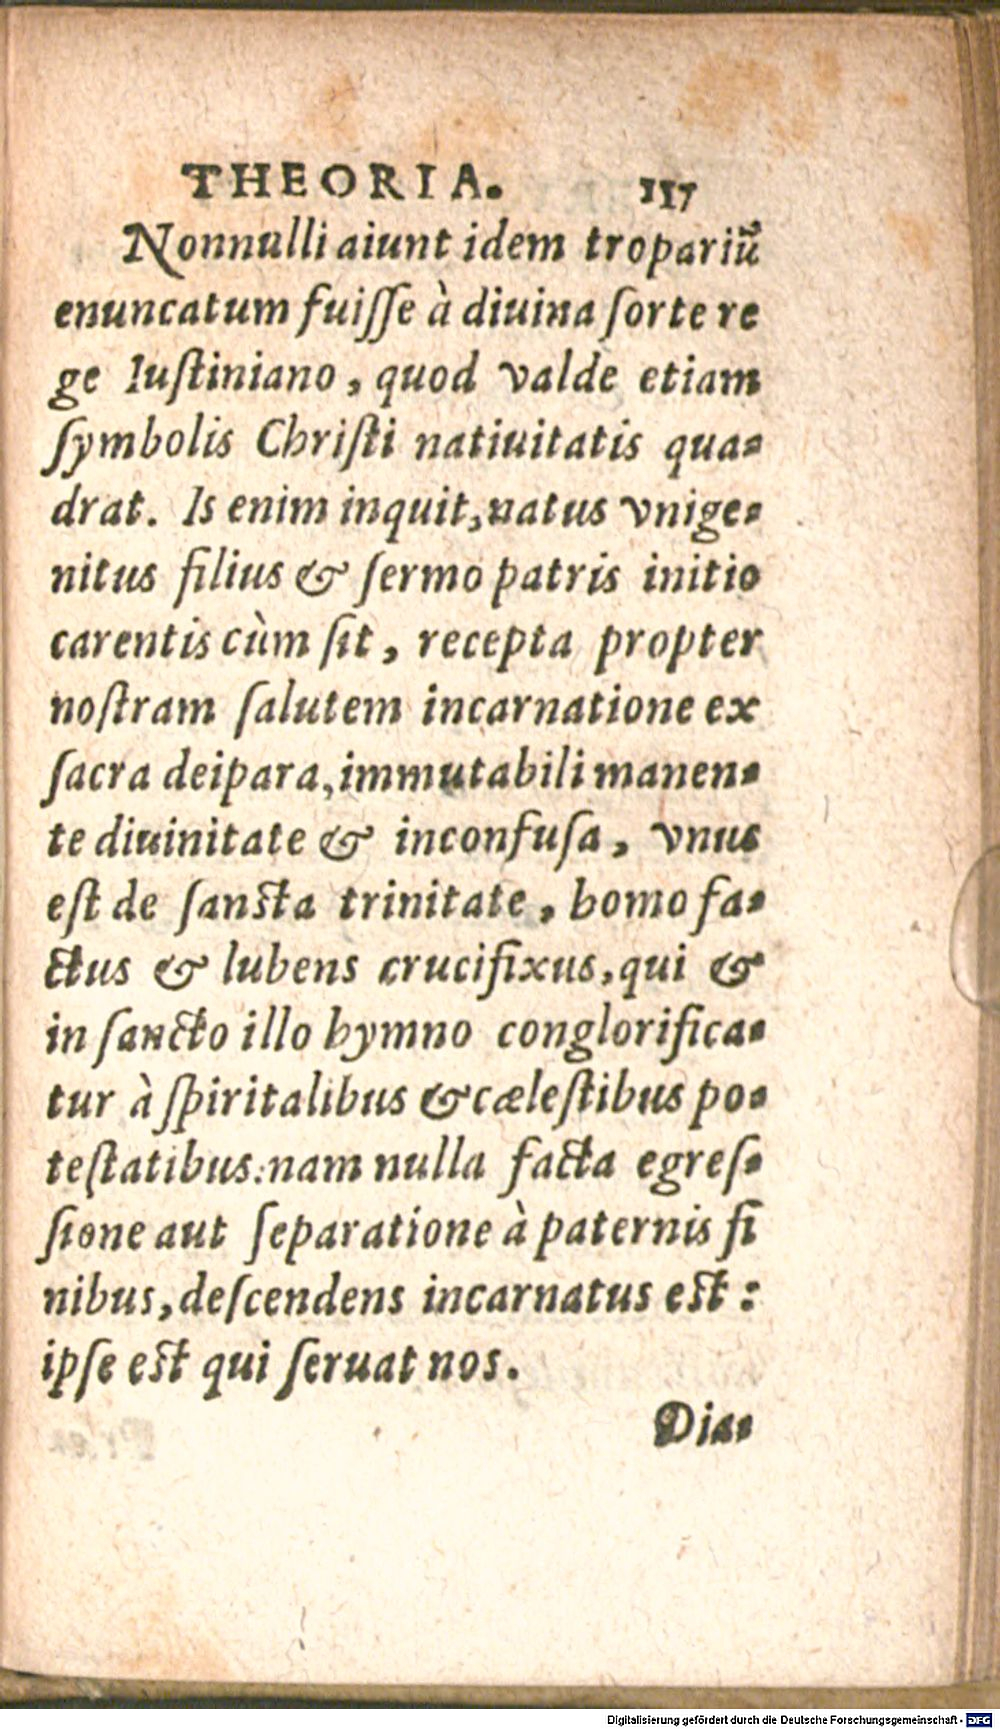 THEORIA. 117
Nonnulli aiunt idem tropariũ
enuncatum fuiſſe à diuina ſorte re
ge Iuſtiniano, quod valdè etiam
ſymbolis Chriſti natiuitatis qua-
drat. Is enim inquit, natus vnige-
nitus filius & ſermo patris initio
carentis cùm ſit, recepta propter
noſtram ſalutem incarnatione ex
ſacra deipara, immutabili manen-
te diuinitate & inconfuſa, vnus
eſt de ſancta trinitate, homo fa-
ctus & lubens crucifixus, qui &
in ſancto illo hymno conglorifica-
tur à ſpiritalibus & cæleſtibus po-
teſtatibus: nam nulla facta egreſ-
ſione aut ſeparatione à paternis fi
nibus, deſcendens incarnatus eſt:
ipſe eſt qui ſeruat nos.
Dia-
Digitalisierung gefördert durch die Deutsche Forschungsgemeinschaft - DFG